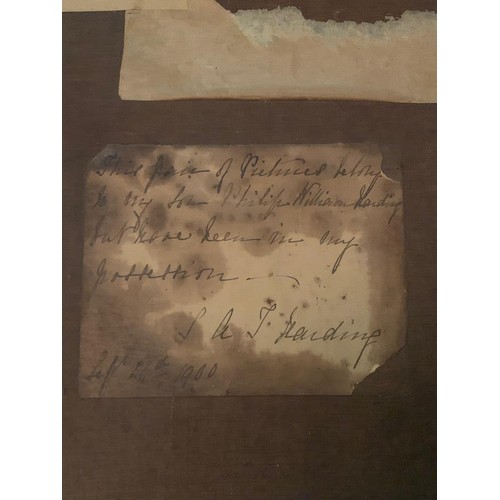 This pair of Pictures belong
to my Son Philip William Harding
but have been in my
possession
S A T Harding
Sept 1900